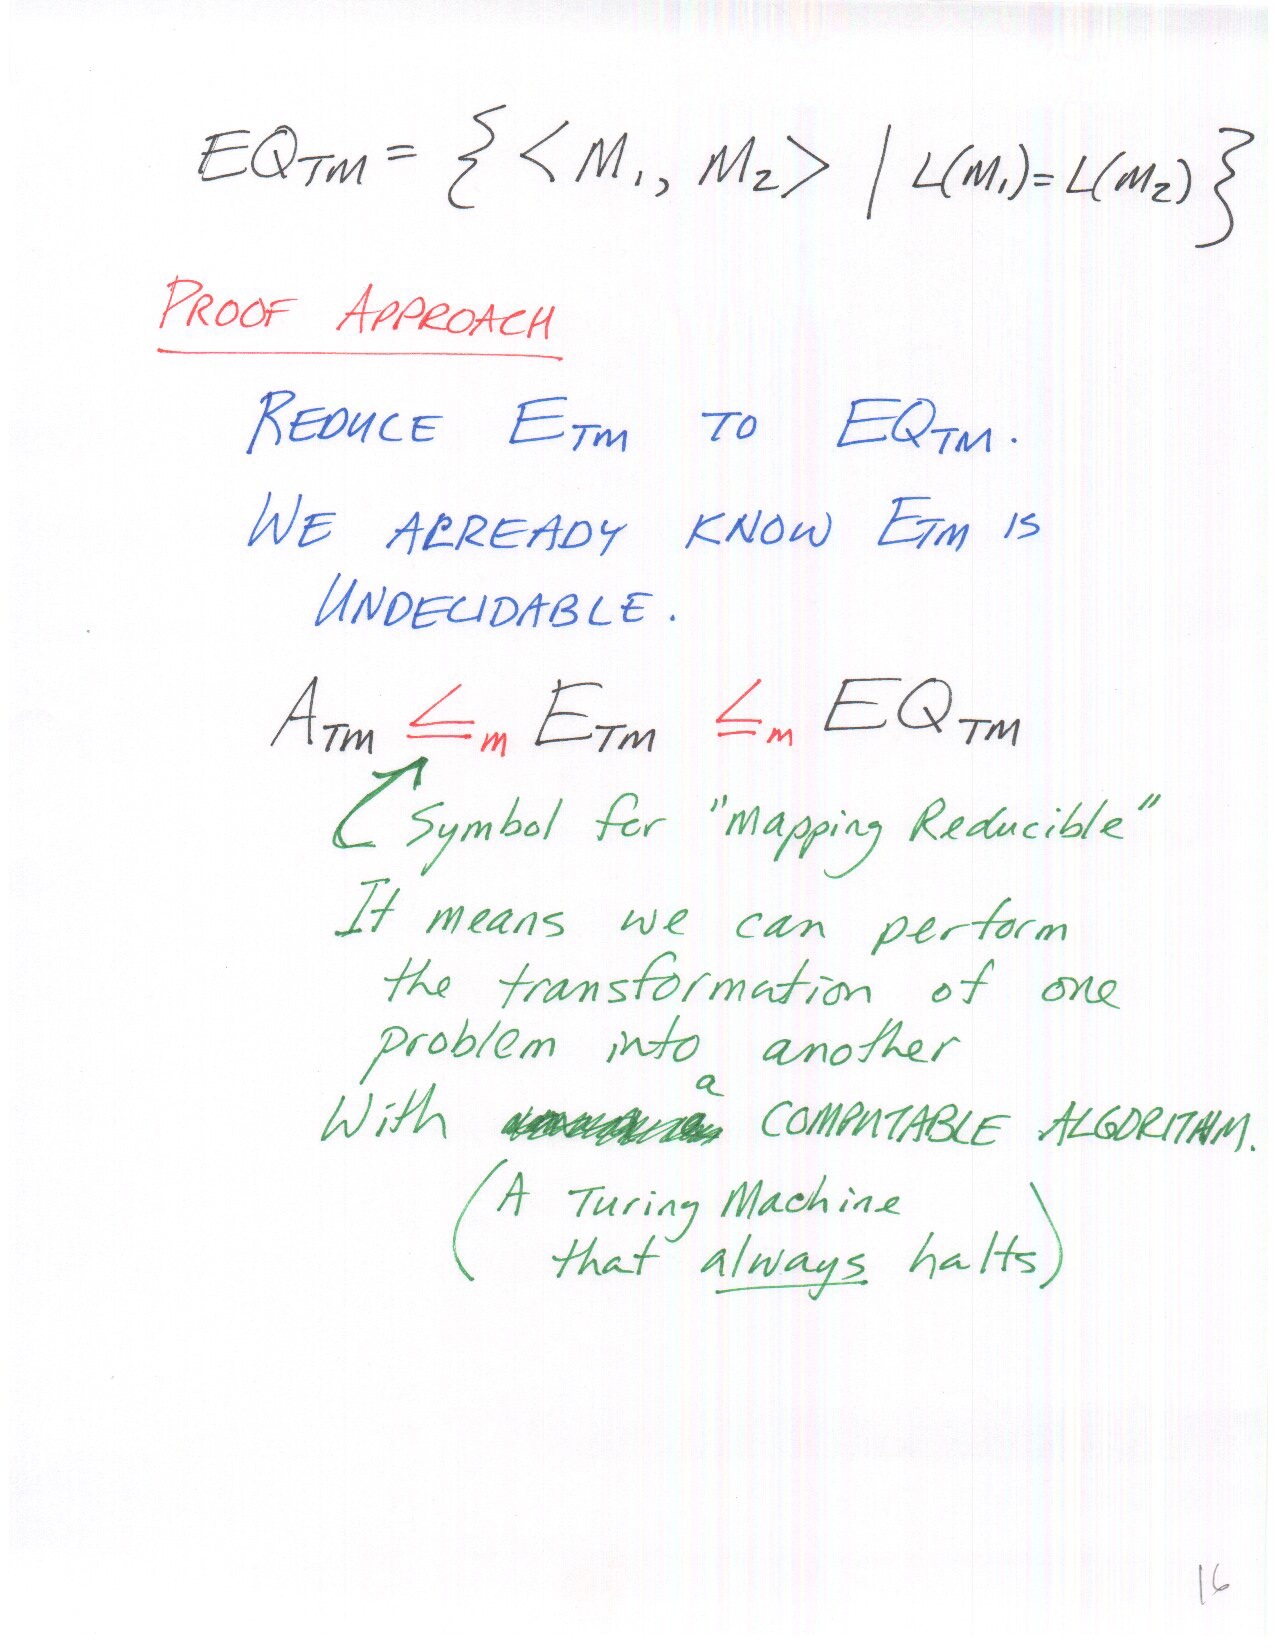 EQTM = { <M1, M2> | L(M1) = L(M2) }
PROOF APPROACH
REDUCE ETM TO EQTM.
WE ALREADY KNOW ETM IS
UNDECIDABLE.
ATM ≤m ETM ≤m EQTM
Symbol for "Mapping Reducible"
It means we can perform
the transformation of one
problem into another
With a COMPUTABLE ALGORITHM.
(A Turing Machine
that always halts)
16